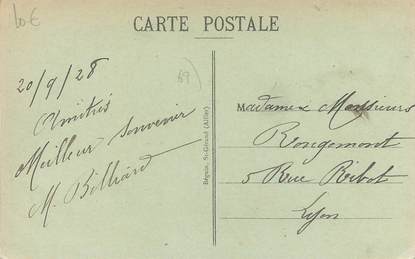 10 €
CARTE POSTALE
20/9/28
69
Amitiés
Meilleur Souvenir
M. Billiard
Béguin, St-Gérand (Allier)
Madame & Messieurs
Rougemont
5 Rue Ribot
Lyon